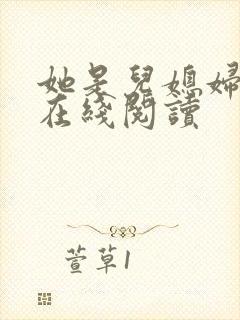 她是兒媳婦
在綫閱讀
萱草1